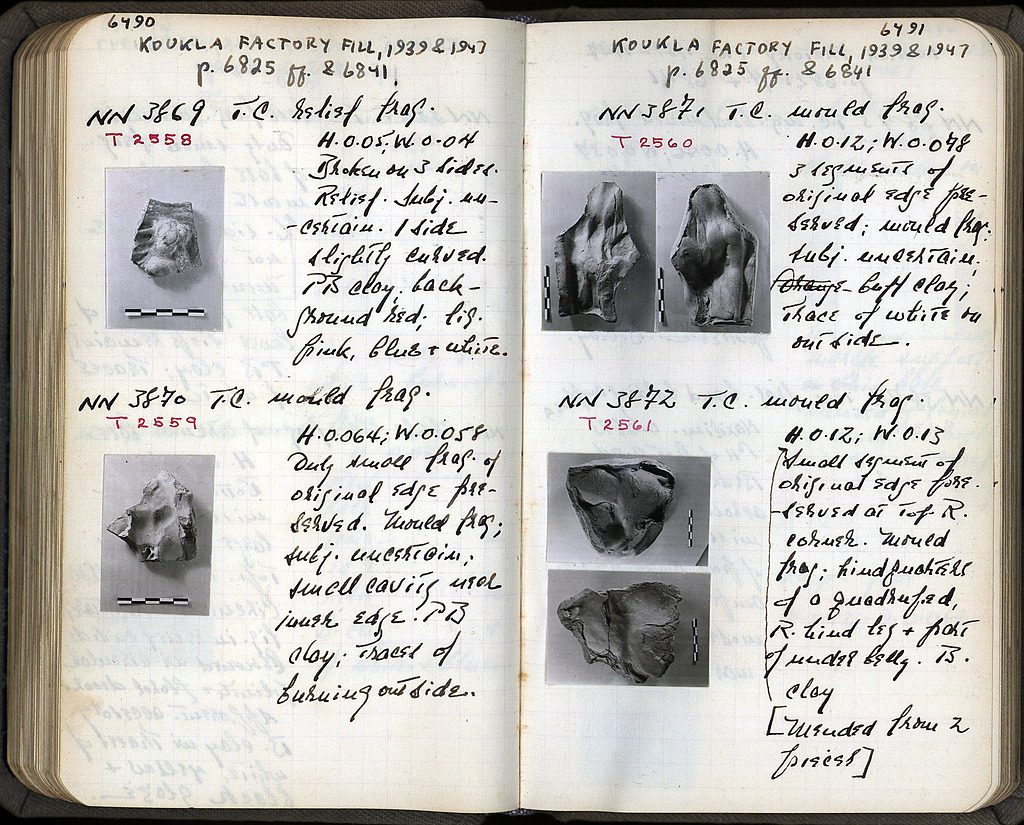 6490
KOUKLA FACTORY FILL, 1939 & 1947
p. 6825 ff. & 6841
NN 3869 T.C. relief frag.
T 2558
H. 0.05; W. 0.04
Broken on 3 sides.
Relief. Subj. un-
-certain. 1 side
slightly curved.
PB clay, back-
ground red; fig.
pink, blue + white.
NN 3870 T.C. mould frag.
T 2559
H. 0.064; W. 0.058
Only small frag. of
original edge pre-
served. Mould frag;
subj. uncertain;
small cavity near
inner edge. PB
clay; traces of
burning outside.
6491
KOUKLA FACTORY FILL, 1939 & 1947
p. 6825 ff. & 6841
NN 3871 T.C. mould frag.
T 2560
H. 0.12; W. 0.078
3 segments of
original edge pre-
served; mould frag;
subj. uncertain.
Orange-buff clay;
trace of white on
outside.
NN 3872 T.C. mould frag.
T 2561
H. 0.12; W. 0.13
Small segment of
original edge pre-
-served at top R.
corner. Mould
frag; hindquarters
of a quadruped,
R. hind leg + part
of under belly. B.
clay
[Mended from 2
pieces]